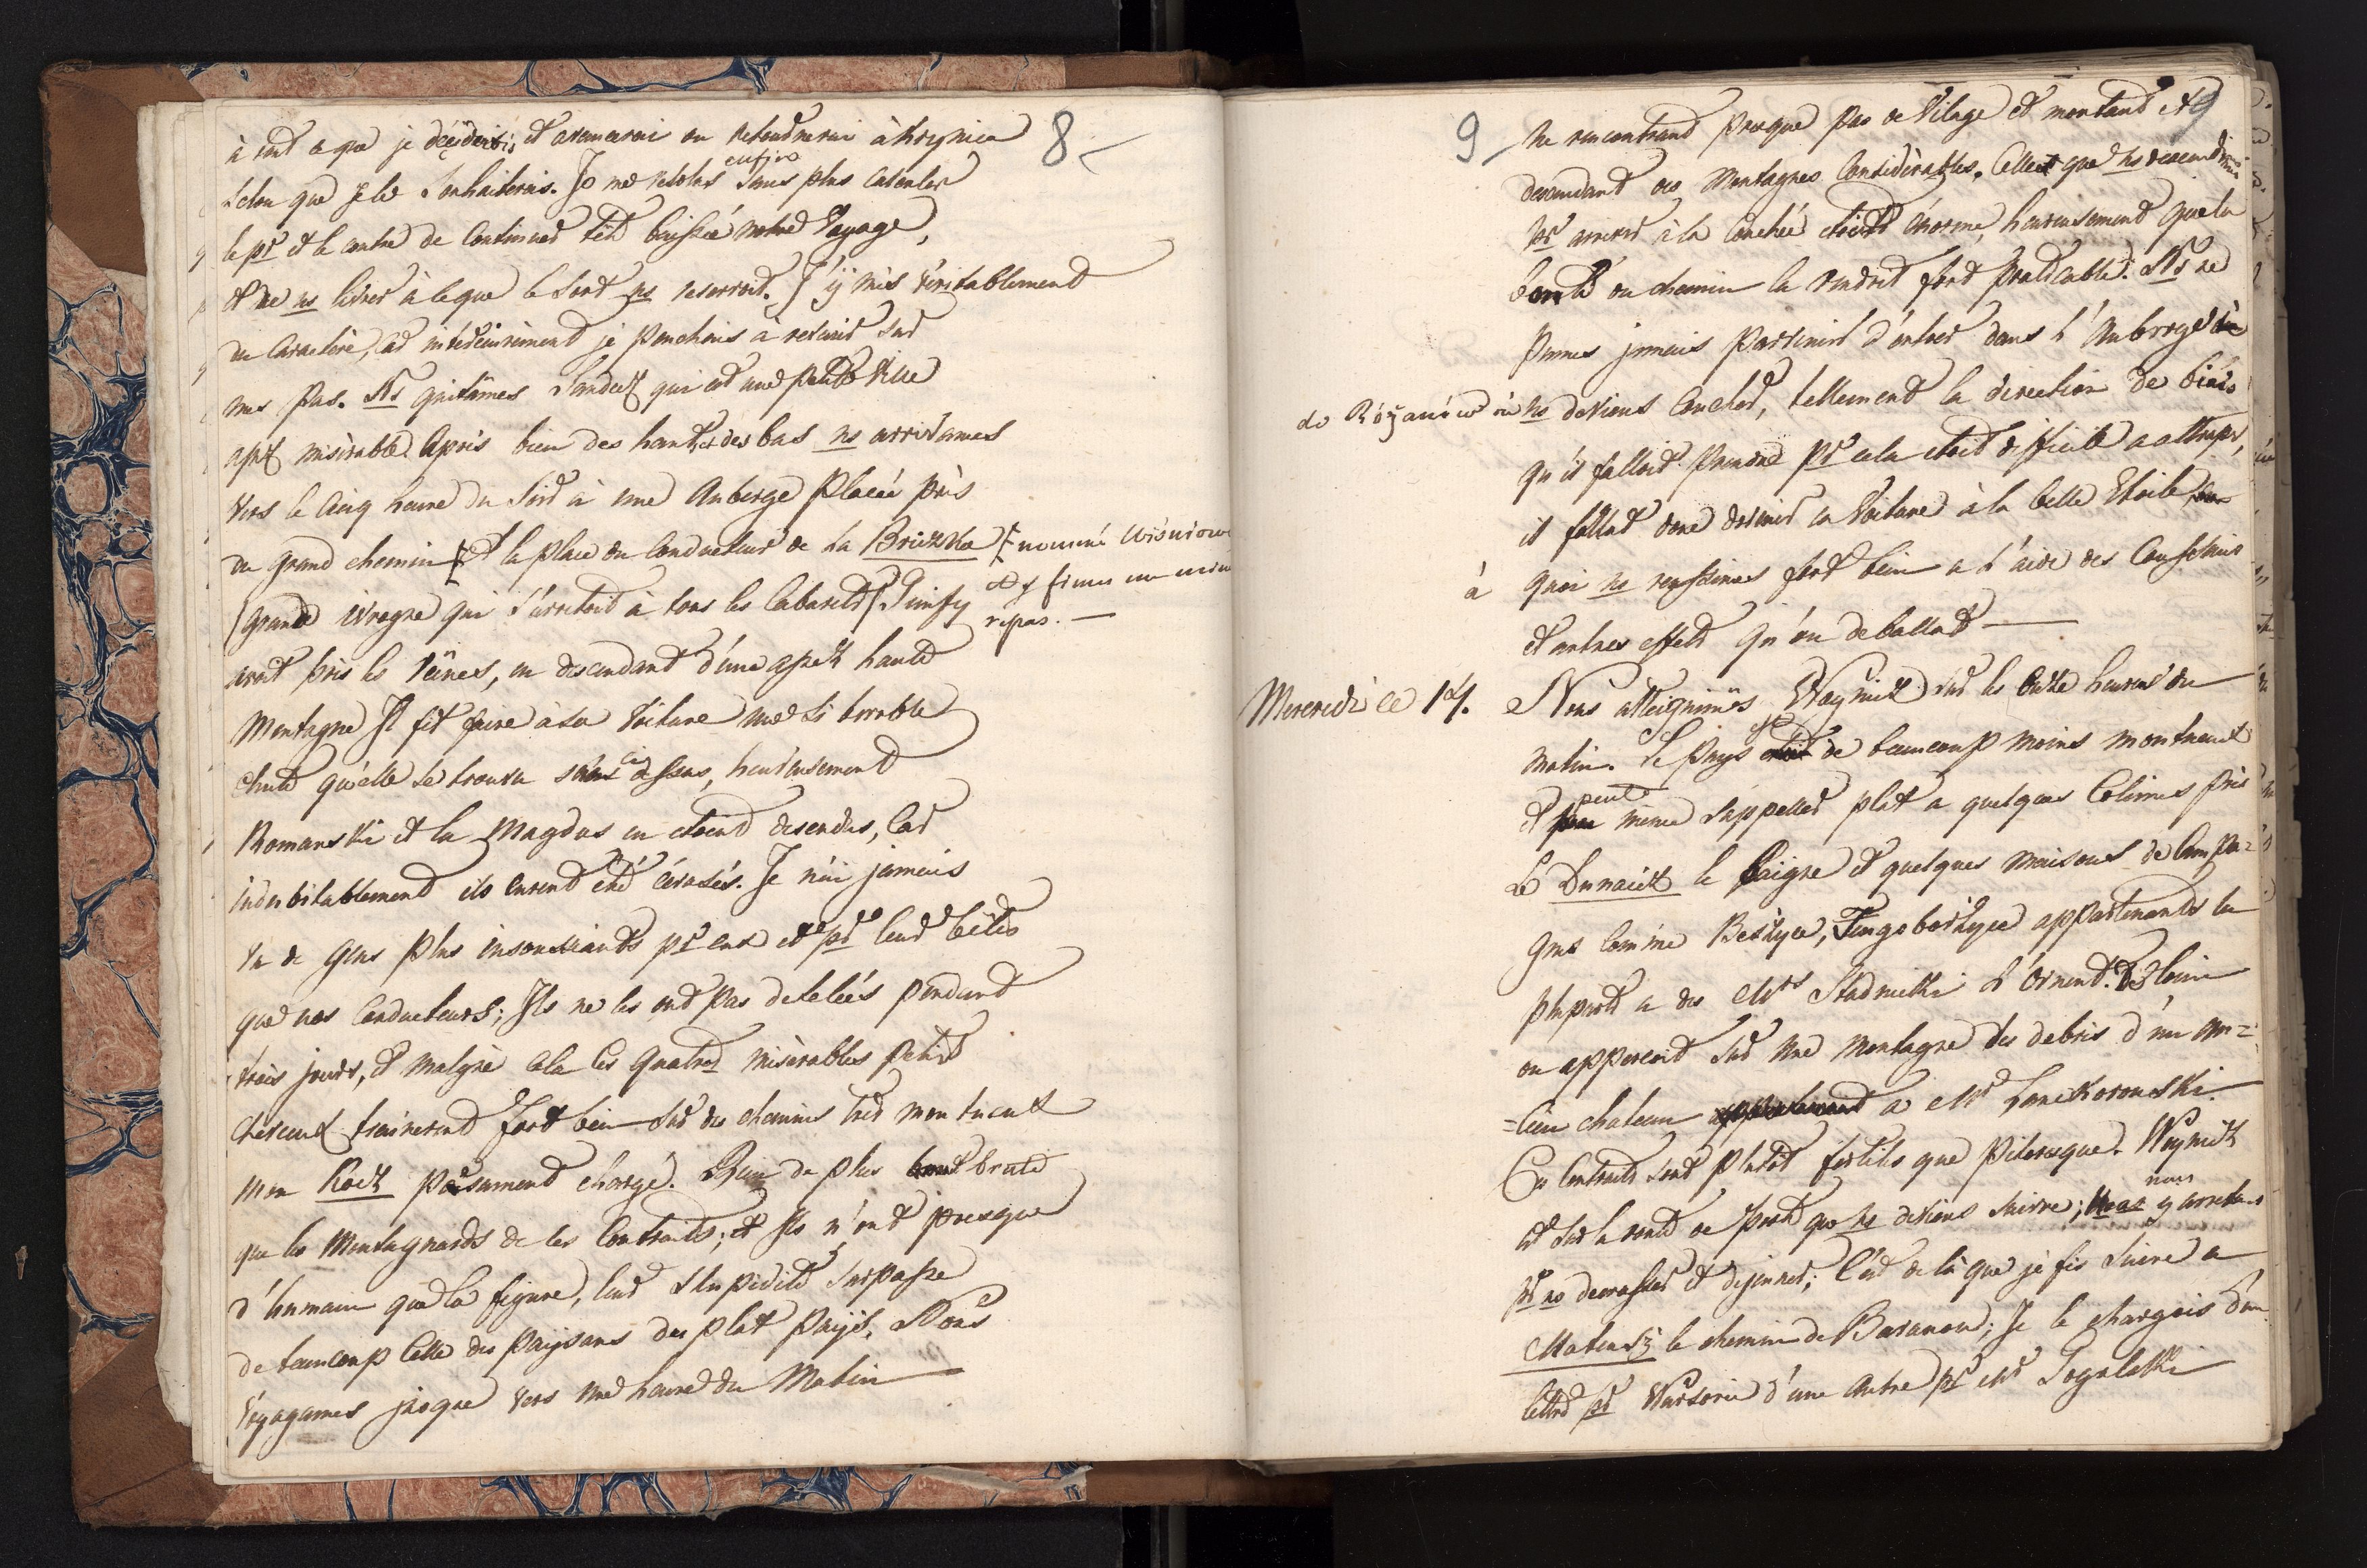 8
à tout ce que je déciderois; et avancerai ou retournerai à Krynica
selon que je le souhaiterois. Je me resolus enfin sans plus calculer
le pr et le contre de continuer tête baissée notre Voyage,
et de ns livrer à ce que le sort ns reservoit. J'y mis véritablement
du caractère, car interieurement je penchois à revenir sur
mes pas. Ns quitâmes Sandecz qui est une petite Ville
assez misérable. Après bien des hauts et des bas ns arrivames
vers le cinq heure du soir à une Auberge placée près
du grand chemin nommé Wisniow
et y fimes un
repas. —
et la place du Conducteur de la Briczka
(grand ivrogne qui s'arretoit à tous les Cabarets)
avoit pris les rênes, en descendant d'une assez haute
Montagne Il fit faire à sa Voiture une si horrible
chute qu'elle se trouva sans dessus, heureusement
Romanski et la Magdus en etoient descendus, car
indubitablement ils eurent été écrasés. Je n'ai jamais
vu de gens plus insouciants pr eux et pr leurs bêtes
que nos Conducteurs; Ils ne les ont pas detelées pendant
trois jours, et malgré cela ces quatre misèrables petits
chevaux trainerent fort bien sur des chemins très montueux
mon Kocz pesamment chargé. Rien de plus brute
que les Montagnards de ces Contrés; et Ils n'ont presque
d'humain que la figure, leur stupidité surpasse
de beaucoup celle des paysans du plat pays. Nous
voyagames jusque vers une heure du Matin
9
ne rencontrant presque pas de Vilage et montant et
descendant des Montagnes Considèrables. Celle que ns descendimes
pr arriver à la couchée étoit énorme, heureusement que la
bonté du chemin la rendoit fort praticable. Ns ne
pumes jamais parvenir d'entrer dans l'Auberge
de Rożanów où ns devions coucher, tellement la direction de biais
qu'il falloit prendre pr cela etoit difficile a attraper,
il fallut donc dormir en Voiture à la belle Etoile,
à quoi ns reussimes fort bien a l'aide des Coussins
et autres effets qu'on deballat —
Mercredi ce 14. Nous atteignimes Woynicz sur les onze heures du
matin. Le pays est de beaucoup moins montueux
et peut même s'appeller plat a quelques Colines près
Le Dunaiecz le baigne et quelques maisons de Campa=
gnes comme appartenants la
plupart a des Mrs Stadnicki l'ornent. De loin
on apperçoit sur une Montagne les debris d'un An=
=cien chateau a Mr Lanckoronski.
Ces Contrées sont plutôt fertiles que pitoresque. Woynicz
est sur la route de poste que ns devions suivre; nous y arretames
pr ns decrasser et dejeuner; C'est de là que je fis suivre a
Mateusz le chemin de Baranow; Je le chargeois d'une
lettre pr Varsovie d'une autre pr Mr